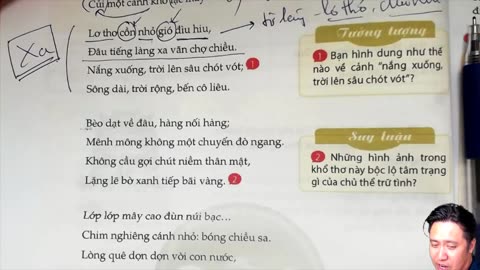 Củi một cành khô lạc mấy
Lơ thơ cồn nhỏ gió đìu hiu,
Đâu tiếng làng xa vãn chợ chiều.
Nắng xuống, trời lên sâu chót vót; 1
Sông dài, trời rộng, bến cô liêu.
Bèo dạt về đâu, hàng nối hàng;
Mênh mông không một chuyến đò ngang.
Không cầu gợi chút niềm thân mật,
Lặng lẽ bờ xanh tiếp bãi vàng. 2
Lớp lớp mây cao đùn núi bạc...
Chim nghiêng cánh nhỏ: bóng chiều sa.
Lòng quê dợn dợn vời con nước,
Xa
từ láy - lơ thơ,
Tưởng tượng
1 Bạn hình dung như thế
nào về cảnh “nắng xuống,
trời lên sâu chót vót”?
Suy luận
2 Những hình ảnh trong
khổ thơ này bộc lộ tâm trạng
gì của chủ thể trữ tình?